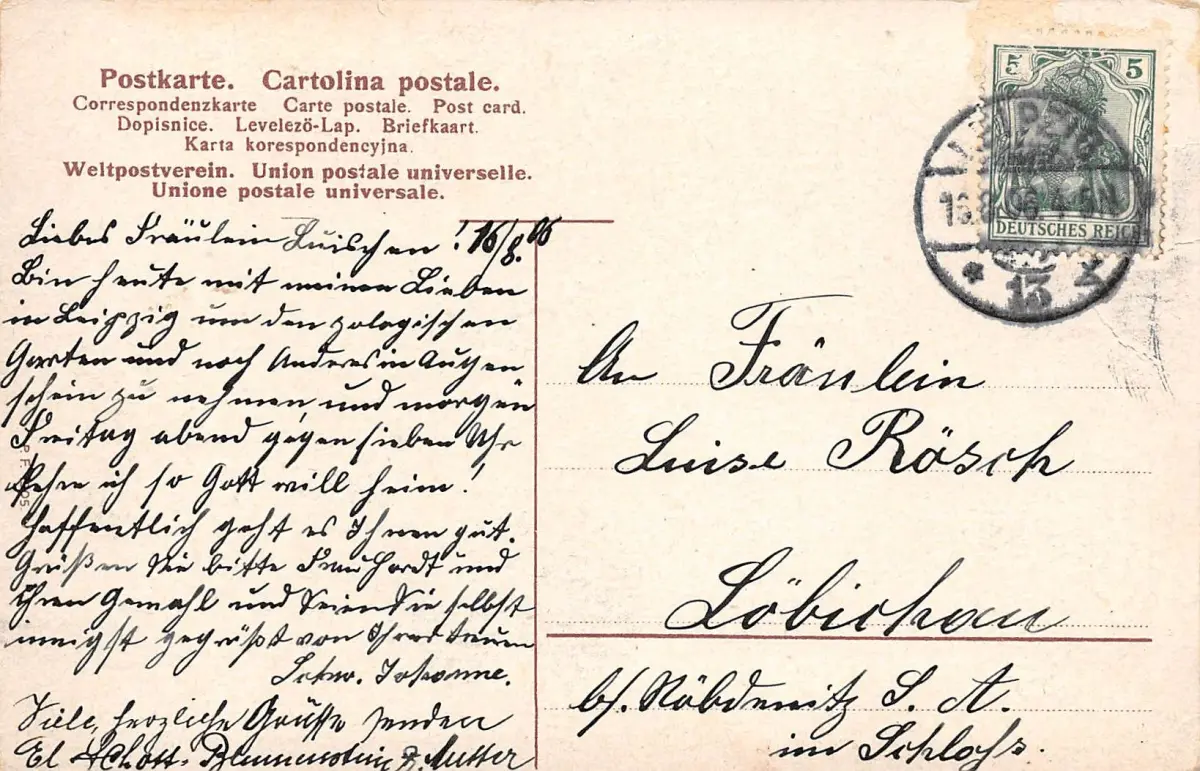 Postkarte. Cartolina postale.
Correspondenzkarte Carte postale. Post card.
Dopisnice. Levelező-Lap. Briefkaart.
Karta korespondencyjna.
Weltpostverein. Union postale universelle.
Unione postale universale.
5 5
DEUTSCHES REICH
LEIPZIG
16.8.06. 4-5N
* 13
Liebes Fräulein Luischen! 16/8.06
Bin heute mit meinen Lieben
in Leipzig um den zologischen
Garten und noch Anderes in Augen
schein zu nehmen und morgen
Freitag abend gegen sieben Uhr
kehre ich so Gott will heim!
Hoffentlich geht es Ihnen gut.
Grüßen Sie bitte Frau Hardt und
ihren Gemahl und seien Sie selbst
innigst gegrüßt von Ihrer treuen
Schw. Johanne.
Viele, herzliche Grüsse senden
El Schott- Blumenstein & Mutter
An Fräulein
Luise Rösch
Löbichau
b/. Nöbdenitz S. A.
im Schloß.